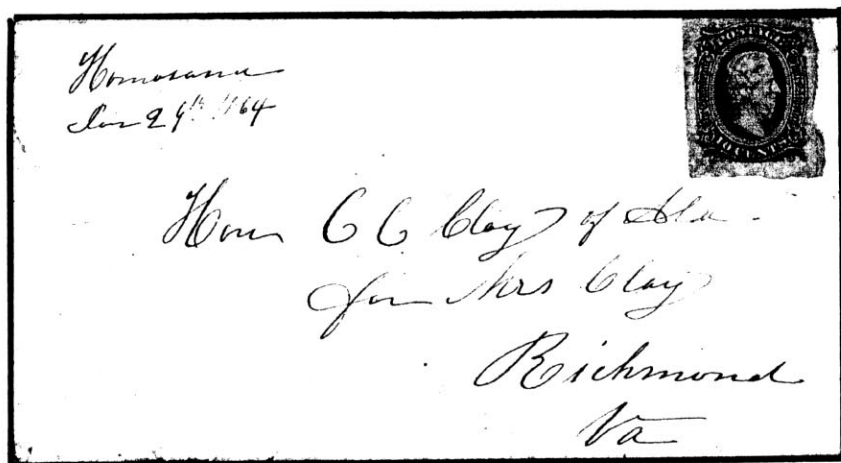 Homosassa
Jan 29th 1864
POSTAGE
10 CENTS
Hon C C Clay of Ala
for Mrs Clay
Richmond
Va